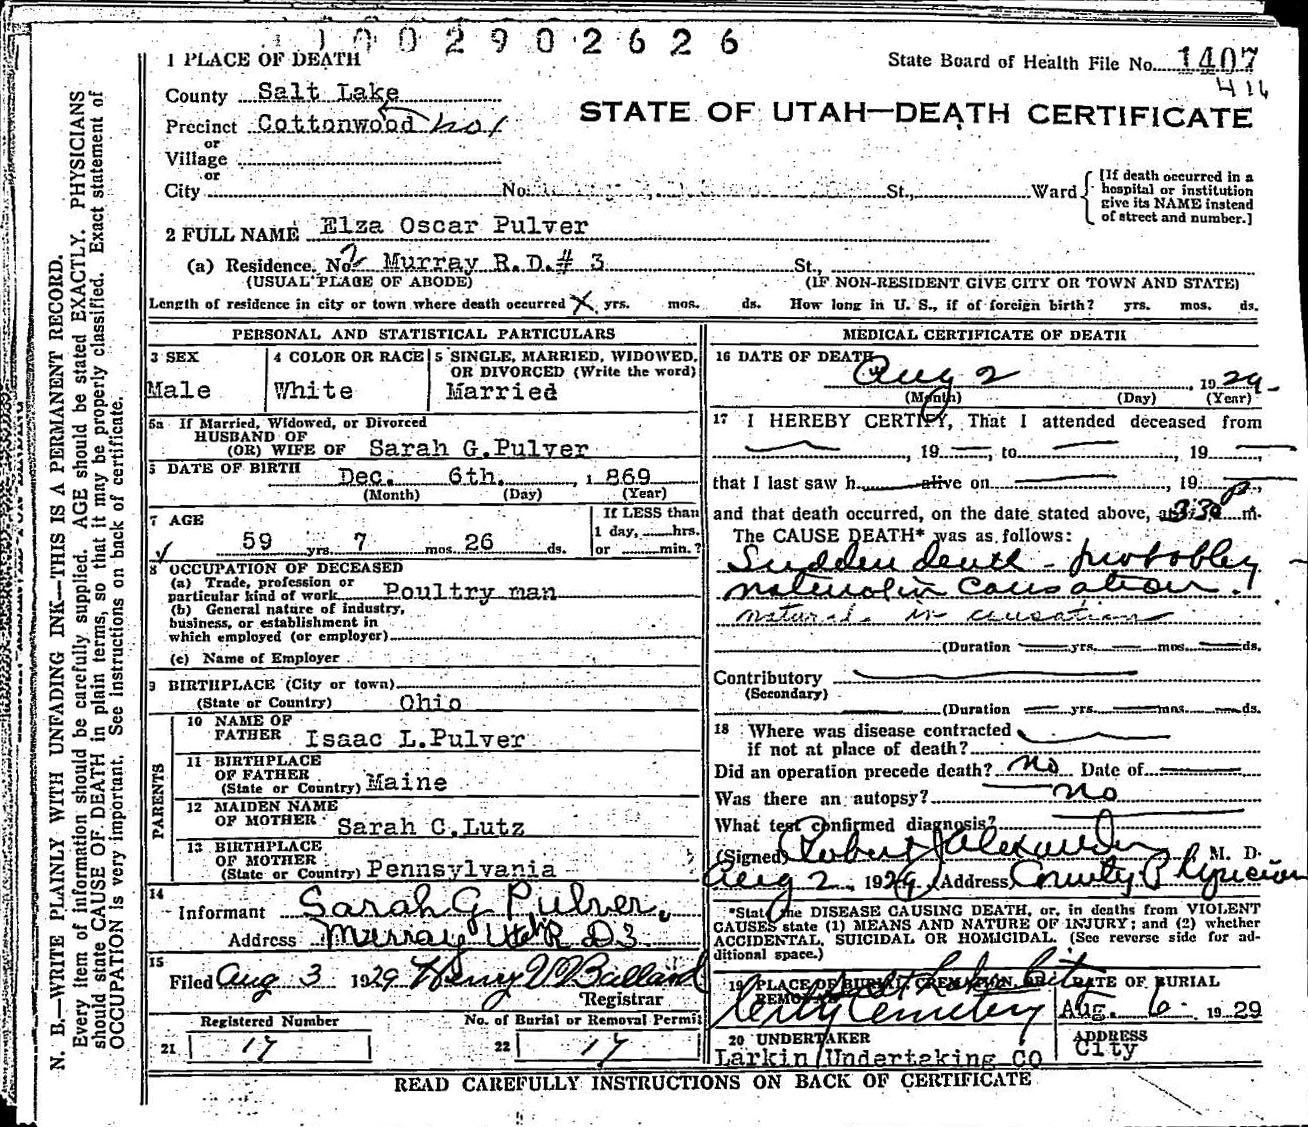 1002902626
1 PLACE OF DEATH
State Board of Health File No. 1407
416
County Salt Lake
STATE OF UTAH—DEATH CERTIFICATE
Precinct Cottonwood
or
Village
or
City No. St., Ward
[If death occurred in a
hospital or institution
give its NAME instead
of street and number.]
2 FULL NAME Elza Oscar Pulver
(a) Residence, No. 2 Murray R.D.# 3 St.,
(USUAL PLACE OF ABODE) (IF NON-RESIDENT GIVE CITY OR TOWN AND STATE)
Length of residence in city or town where death occurred X yrs. mos. ds. How long in U. S., if of foreign birth? yrs. mos. ds.
PERSONAL AND STATISTICAL PARTICULARS
3 SEX
Male
4 COLOR OR RACE
White
5 SINGLE, MARRIED, WIDOWED,
OR DIVORCED (Write the word)
Married
5a If Married, Widowed, or Divorced
HUSBAND OF
(OR) WIFE OF Sarah G.Pulver
6 DATE OF BIRTH
Dec. 6th. , 1 869
(Month) (Day) (Year)
7 AGE
59 yrs. 7 mos. 26 ds.
If LESS than
1 day, hrs.
or min.?
8 OCCUPATION OF DECEASED
(a) Trade, profession or
particular kind of work Poultry man
(b) General nature of industry,
business, or establishment in
which employed (or employer)
(c) Name of Employer
9 BIRTHPLACE (City or town)
(State or Country) Ohio
PARENTS
10 NAME OF
FATHER Isaac L.Pulver
11 BIRTHPLACE
OF FATHER
(State or Country) Maine
12 MAIDEN NAME
OF MOTHER Sarah C.Lutz
13 BIRTHPLACE
OF MOTHER
(State or Country) Pennsylvania
14
Informant Sarah G Pulver.
Address Murray Utah R D 3
15
Filed Aug 3 1929 Henry W Balland
Registrar
Registered Number
21 17
No. of Burial or Removal Permit
22 17
MEDICAL CERTIFICATE OF DEATH
16 DATE OF DEATH
Aug 2 , 1929
(Month) (Day) (Year)
17 I HEREBY CERTIFY, That I attended deceased from
, 19 , to , 19
that I last saw h alive on , 19 ,
and that death occurred, on the date stated above, at 3:30 P m.
The CAUSE DEATH* was as follows:
Sudden death - probobley
naturalin Causation.
natural in causation
(Duration yrs. mos. ds.
Contributory
(Secondary)
(Duration yrs. mos. ds.
18 Where was disease contracted
if not at place of death?
Did an operation precede death? no Date of
Was there an autopsy? no
What test confirmed diagnosis?
(Signed) Robert J Alexander, M. D.
Aug 2, 1929 (Address) County Physician
*State the DISEASE CAUSING DEATH, or, in deaths from VIOLENT
CAUSES state (1) MEANS AND NATURE OF INJURY; and (2) whether
ACCIDENTAL, SUICIDAL OR HOMICIDAL. (See reverse side for ad-
ditional space.)
19 PLACE OF BURIAL, CREMATION, OR
REMOVAL
Salt Lake City
City Cemetery
DATE OF BURIAL
Aug. 6 19 29
20 UNDERTAKER
Larkin Undertaking CO
ADDRESS
City
READ CAREFULLY INSTRUCTIONS ON BACK OF CERTIFICATE
N. B.—WRITE PLAINLY WITH UNFADING INK—THIS IS A PERMANENT RECORD.
Every item of information should be carefully supplied. AGE should be stated EXACTLY. PHYSICIANS
should state CAUSE OF DEATH in plain terms, so that it may be properly classified. Exact statement of
OCCUPATION is very important. See instructions on back of certificate.